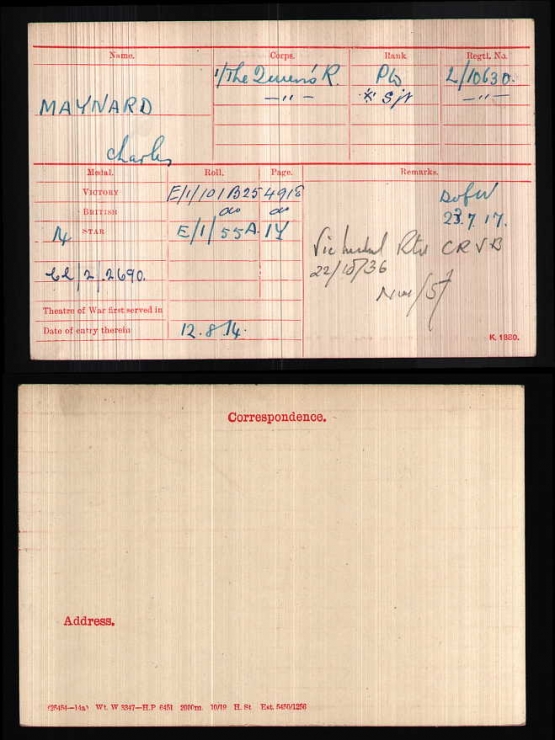 Name.
Corps.
Rank
Regtl. No.
1/The Queen's R.
Pte
L/10630.
MAYNARD
—"—
* Sjt
—"—
Charles
Medal.
Roll.
Page.
Remarks.
VICTORY
E/1/101B25
4918
D of W
BRITISH
do
do
23.7.17.
14
STAR
E/1/55A
14
CRVB
22/10/36
Cl/2/2690.
Theatre of War first served in
Date of entry therein
12.8.14.
K. 1380.
Correspondence.
Address.
(26454—14a) Wt. W 3347—H.P 6451 2000m. 10/19 H. St Est. 5450/1256